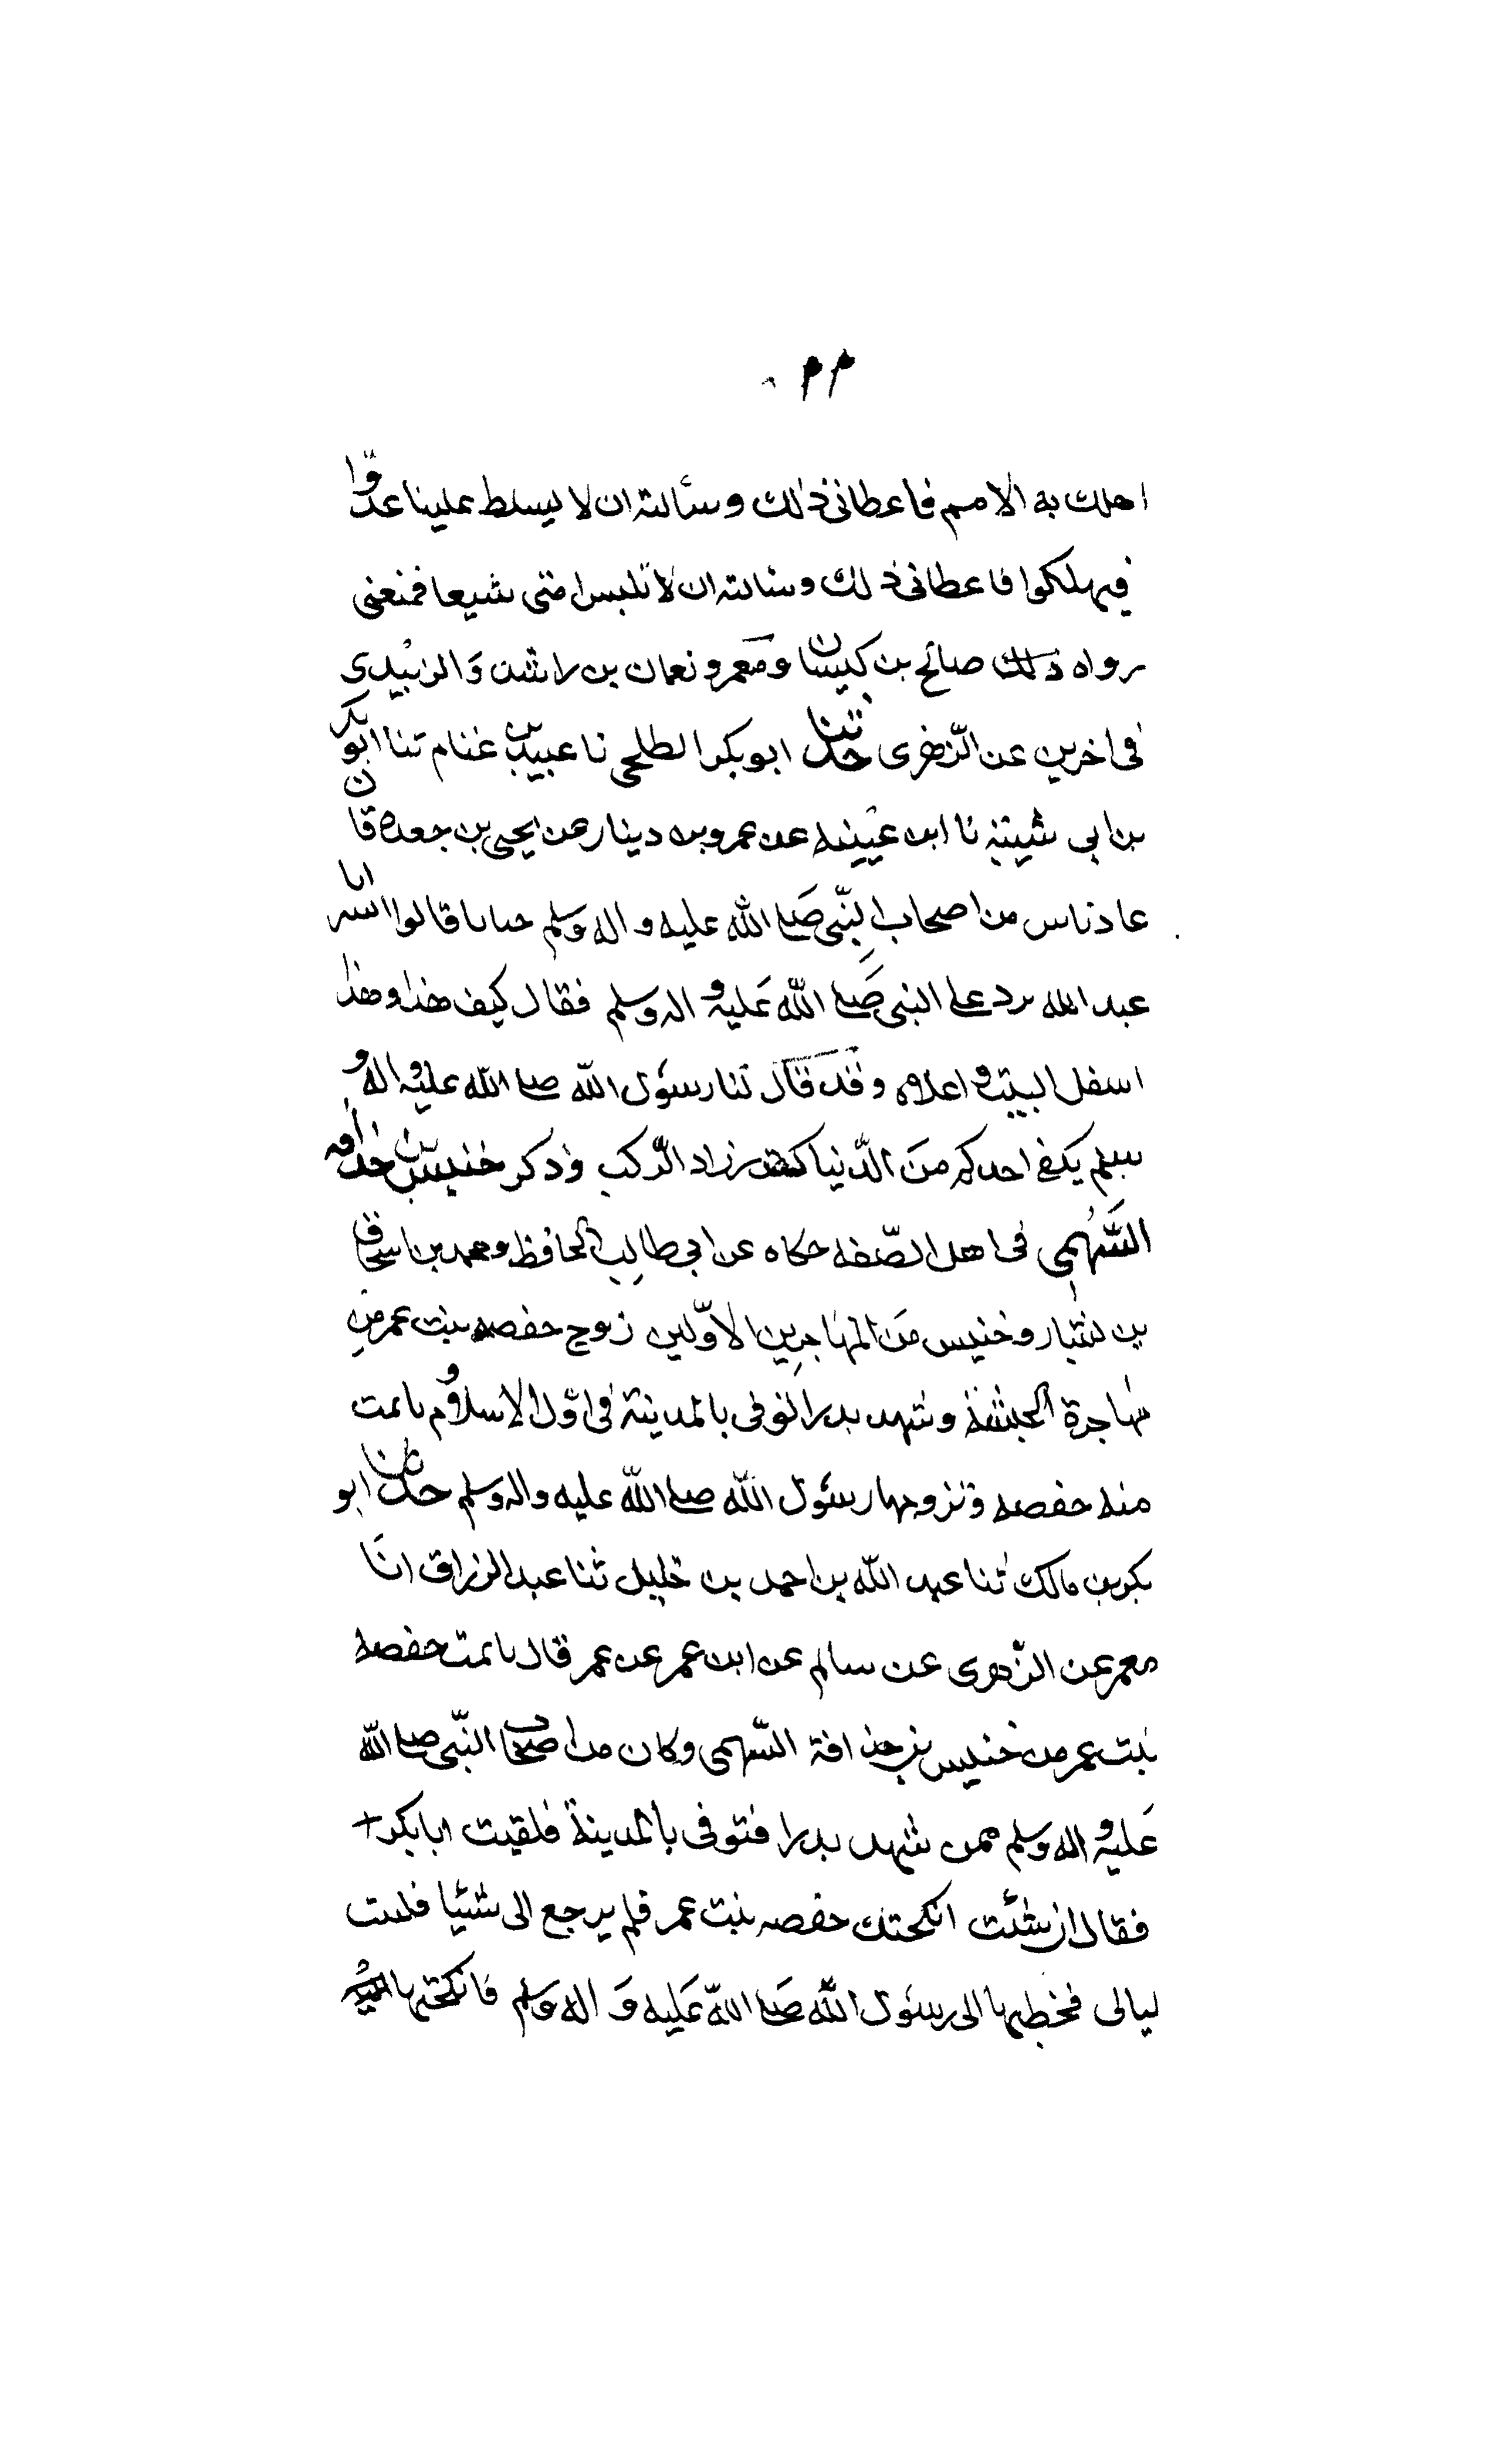 ٢٢
اهلك به الامم فاعطانى ذلك وسألته ان لا يسلط علينا عدوّا
فيهلكوا فاعطانى ذلك وسالته ان لا تلبس امتى شيعا فمنعنى
رواه ذلك صالح بن كيسان ومعمر ونعمان بن راشد وَالزبيدى
فى اخرين عن الزّهرى حدثنا ابو بكر الطلحى نا عبيد بن غنام ثنا ابو بكر
بن ابى شيبة نا ابن عيينه عن عمرو بن دينار عن يحيى بن جعده قال
عاد ناس من اصحاب النبّى صَلى الله عليه واله وَسلم خبابا قالوا ابشر ابا
عبد الله ترد على النبى صَلى اللّه عَليه و اله وسلم فقال كيف هذا وهذا
اسفل البيت و اعلاه وقد قال لنا رسوُل اللّه صلى اللّه عليه و اله و
سلم يكفى احدكم منَ الدّنيا كقدر زاد الرّكب وذكر خنيس بن حذافه
السَّهُمى فى اهل الصّفه حكاه عن ابى طالِب الحافظ ومحمد بن اسحاق
بن يسار وخنيس منَ المهَاجرِين الاوّلين زوج حفصه بنت عمر منِ
مهاجرة الحبشة وشهد بدرا توفى بالمدينة فى اوّل الاسلام و تايمت
منه حفصه وتزوجها رسوُل اللّه صلى اللّه عليه واله وسلم حدثنا ابو
بكر بن مالك ثنا عبد اللّه بن احمد بن حنبل ثنا عبد الرزاق انَا
معمر عن الزّهرى عن سالم عن ابن عمر عن عمر قال تايمت حفصه
بنت عمر من خنيس بن حذافة السّهمى وكان من اصحاب النّبى صلى اللّه
عَليه و اله وسلم ممن شهد بدرا فتوفى بالمدينة فلقيت ابا بكر
فقال ان شئت انكحتك حفصه بنت عمر فلم يرجع الى شئيا فلبثت
ليالى فخطبها الى رسوُل اللّه صَلى اللّه عَليه وَ اله وَسلم فانكحتها اليه